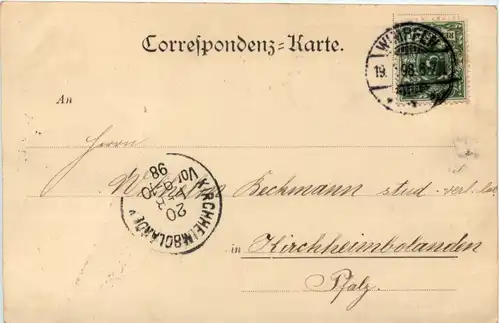 Correspondenz=Karte.
WIMPFEN
19. 98.
An
Herrn
Beckmann stud.
KIRCHHEIMBOLANDEN
20
Vor.
98
in Kirchheimbolanden
Pfalz.